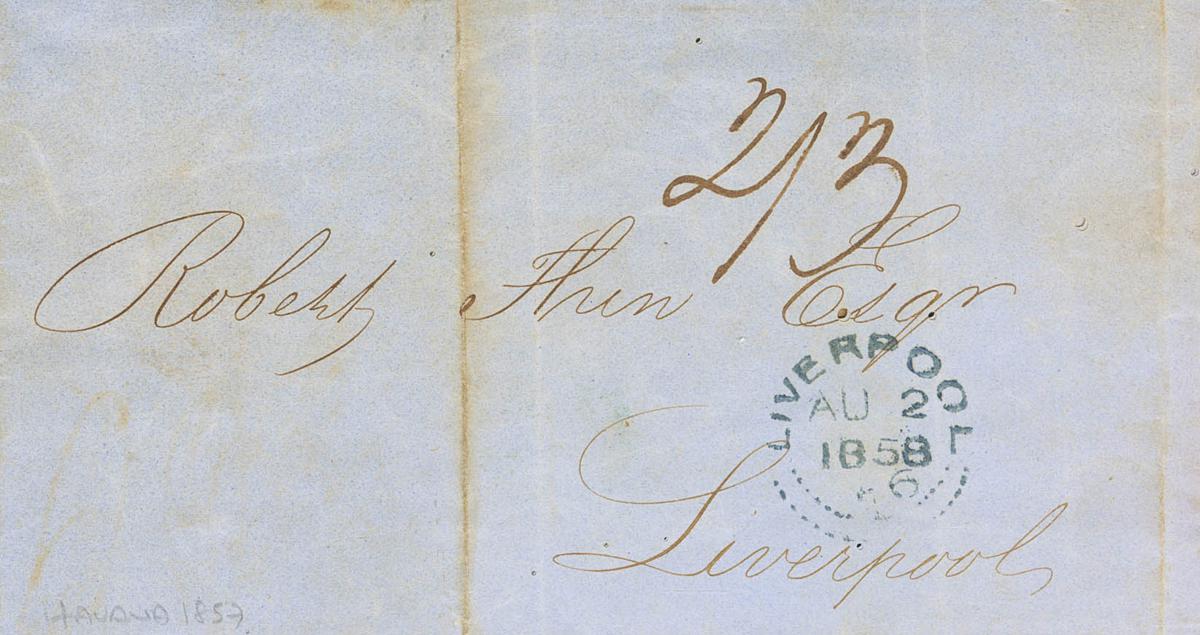 2/3
Robert Thin Esqr
LIVERPOOL
AU 2
1858
Liverpool
HAVANA 1857